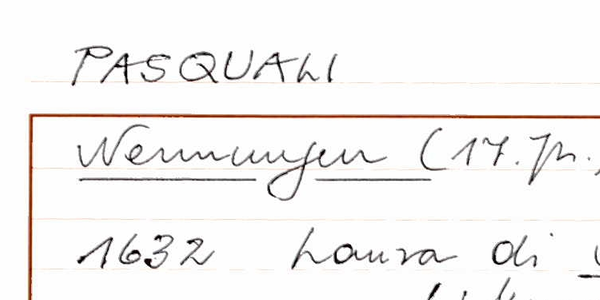 PASQUALI
Nennungen (17. Jh.)
1632 Laura di